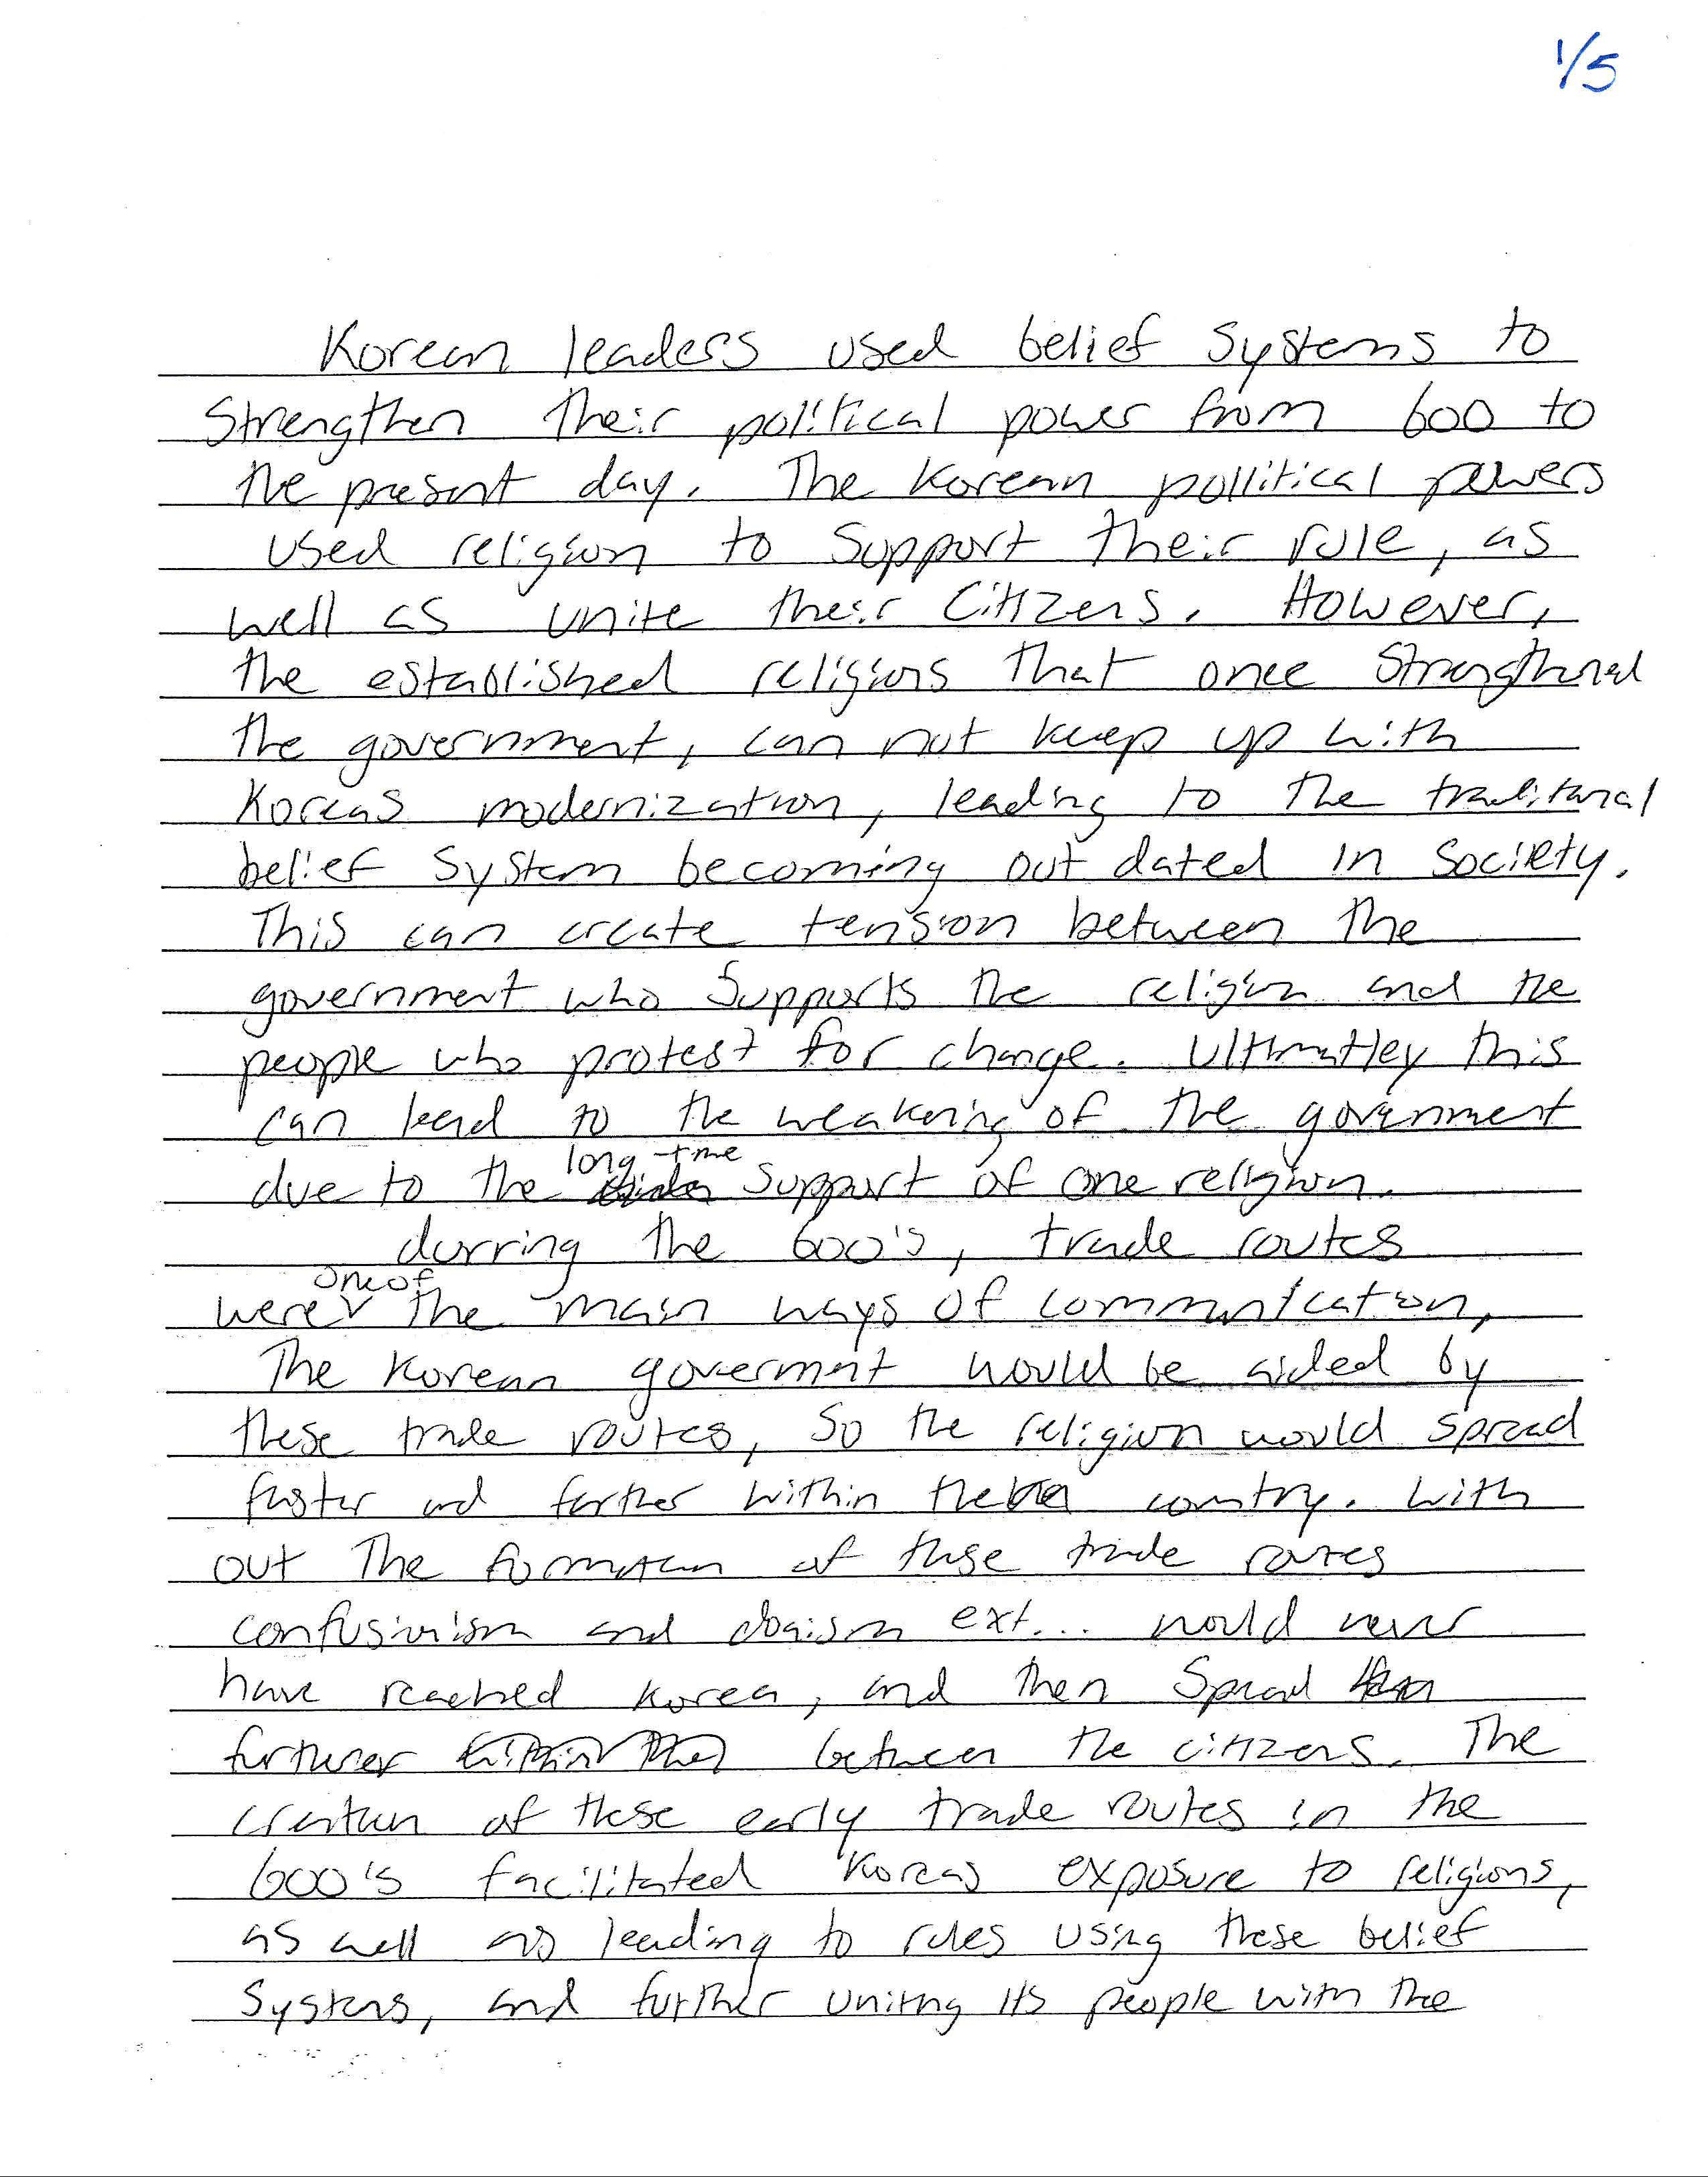 1/5
Korean leaders used belief systems to
Strengthen their political power from 600 to
the present day. The Korean pollitical powers
used religion to support their rule, as
well as unite their Citizens. However,
the established religions that once Strengthened
the government, can not keep up with
Koreas modernization, leading to the traditional
belief System becoming out dated in Society.
This can create tension between the
government who Supports the religion and the
people who protest for change. Ultimatley this
can lead to the weakening of the government
due to the long-time support of one religion.
durring the 600's, trade routes
were one of the main ways of communication,
The Korean goverment would be aided by
these trade routes, So the religion would spread
faster and farther within the country. With
out The formation of these trade routes
confusivism and doaism ext... would never
have reached Korea, and then Spread
furtherer between the citizens. The
creation of these early trade routes in the
600's facilitated Koreas exposure to religions,
as well as leading to rules using these belief
Systems, and further uniting its people with the